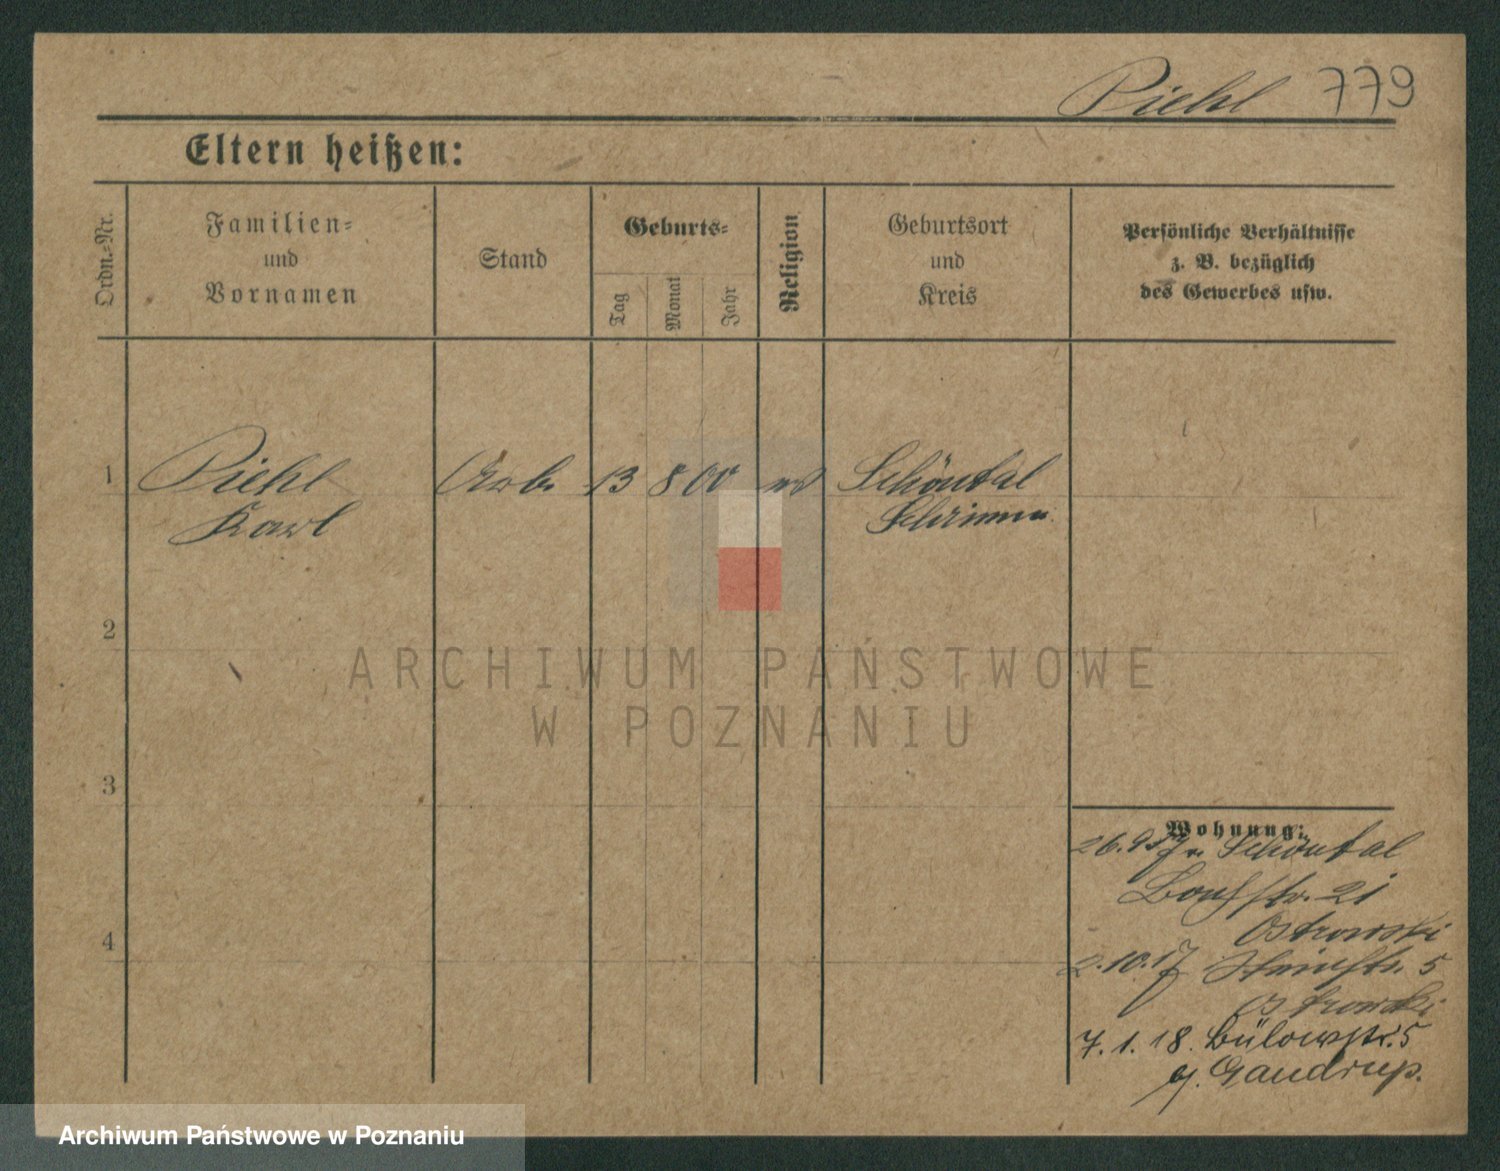 Piehl 779
Eltern heißen:
Ordn.-Nr.
Familien-
und
Vornamen
Stand
Geburts-
Tag
Monat
Jahr
Religion
Geburtsort
und
Kreis
Persönliche Verhältnisse
z. B. bezüglich
des Gewerbes usw.
1 Piehl Arb. 13 8 00 Schöntal
Karl Schrimm
2
3
4
Wohnung:
26.9.17 v. Schöntal
21
Ostrowski
2.10.17 5
Ostrowski
7.1.18. Bülowstr. 5
Gaudrup.
ARCHIWUM PAŃSTWOWE
W POZNANIU
Archiwum Państwowe w Poznaniu